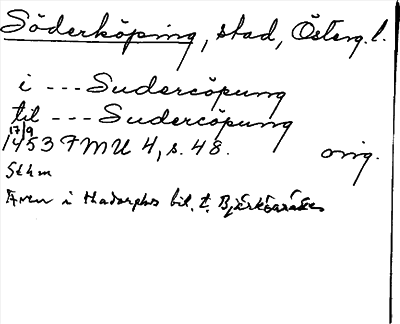 Söderköping, stad, Österg. l.
i --- Sudercöpung
til --- Sudercöpung
17/9
1453 FMU 4, s. 48. orig.
Sthm
Även i Hadorphs bil. t. Bjärköarätten